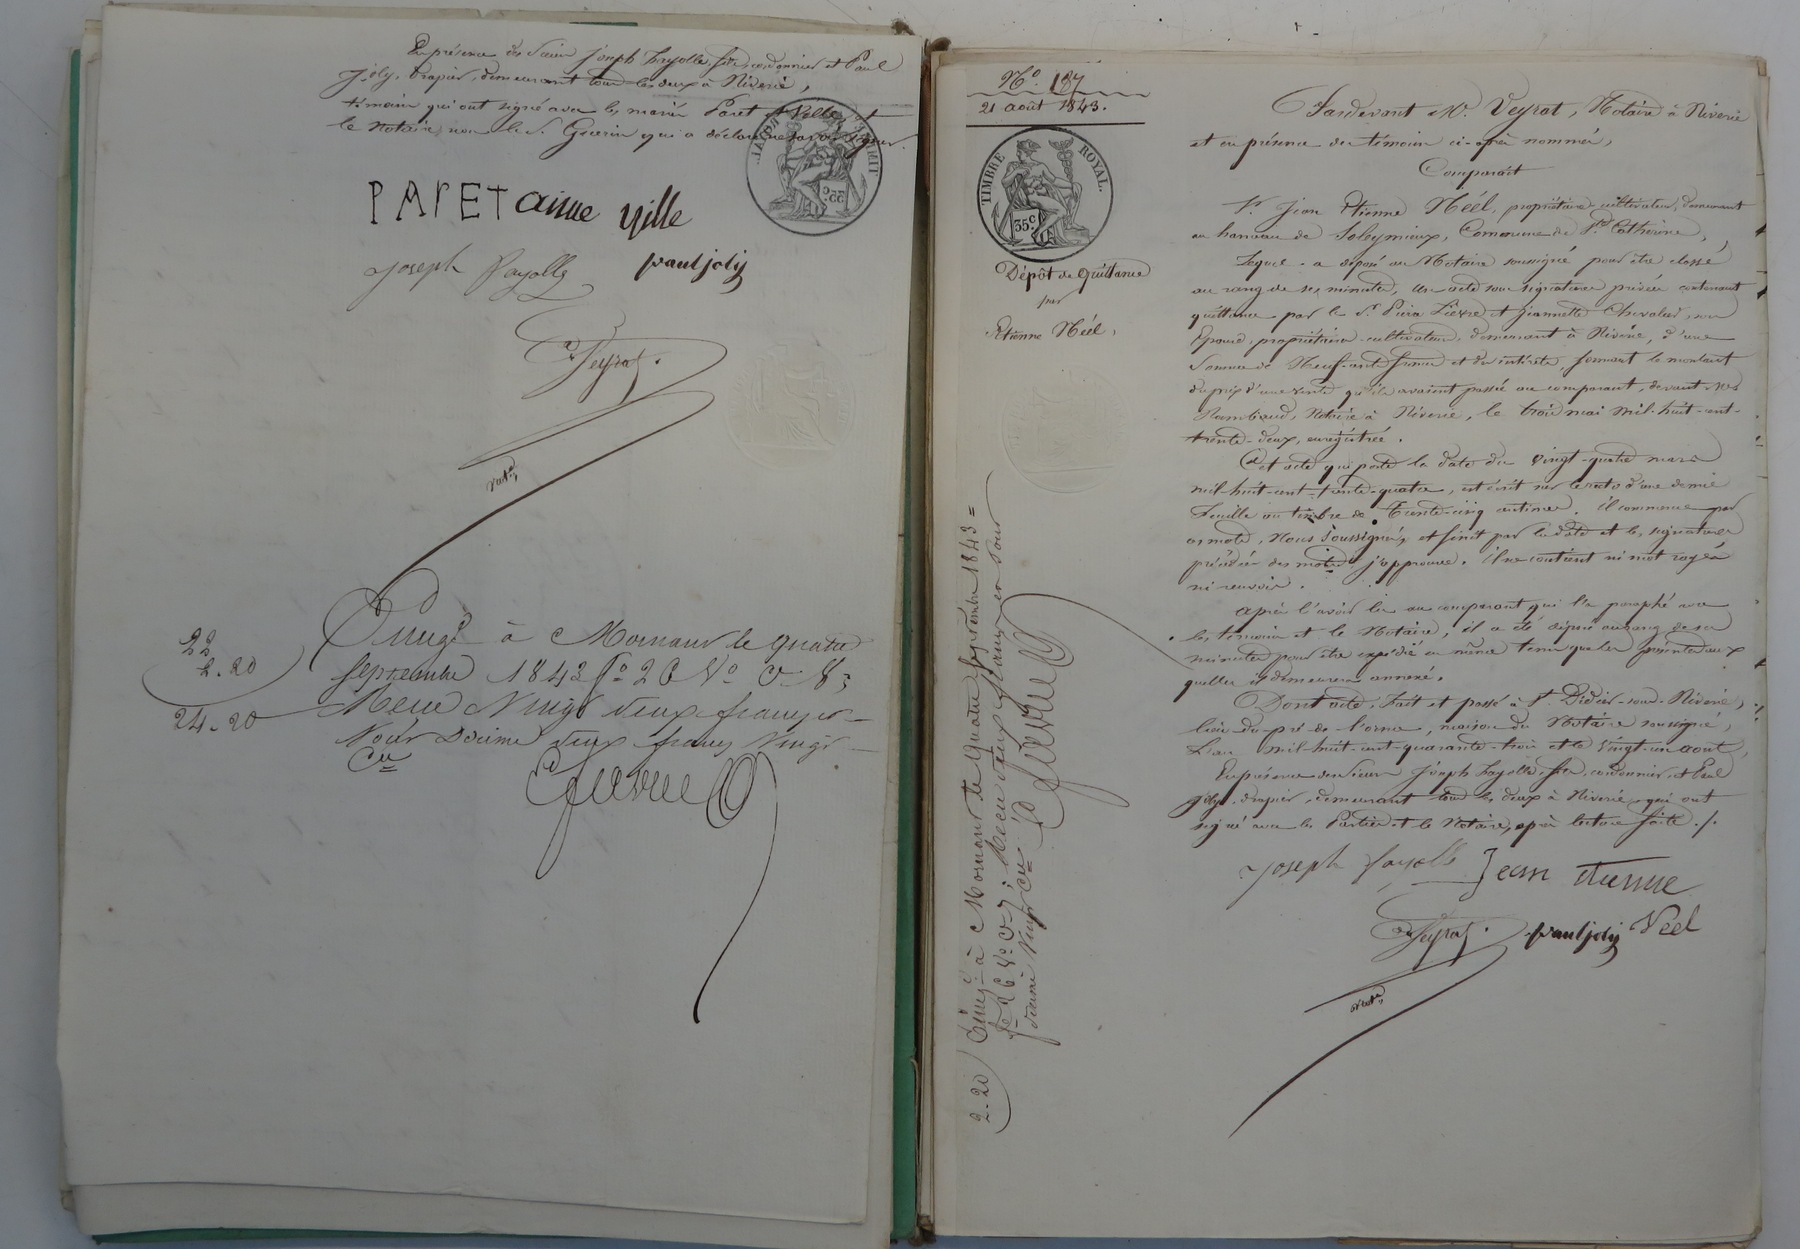 En présence des Sieurs Joseph Fayolle, fils, cordonnier et Paul
Joly, Drapier, demeurant tous les deux à Riverie,
témoins qui ont signé avec les mariés Paret et Ville et
le Notaire, non le S. Guerin qui a déclaré ne savoir signer.
TIMBRE ROYAL
35 c.
PARET ainne ville
Joseph Fayolle pauljoly
Veyrat.
Not.re
Enregé à Mornant le quatre
22
2.20
24.20
septembre 1843 f.o 26 V.o C. 8;
Recu Vingt deux francs et
pour Décime deux francs Vingt
C.es
N.o 187
21 août 1843.
TIMBRE ROYAL.
35 c.
Dépôt de Quittance
par
Etienne Néel.
Enregé à Mornant le Quatre Septembre 1843 =
f.o 26 V.o C. ; Recu deux francs et pour
décime Vingt C.es
2.20
Pardevant M.e Veyrat, Notaire à Riverie
et en présence des témoins ci-après nommés,
Comparait
S.r Jean Etienne Néel, propriétaire cultivateur, demeurant
au hameau de Soleymieux, Commune de S.te Catherine,
Lequel a déposé au Notaire soussigné pour être classé
au rang de ses minutes, un acte sous signatures privées contenant
quittance par le S.r Pierre Lièvre et Jeannette Chevalier, son
Epouse, propriétaires cultivateurs, demeurant à Riverie, d'une
somme de Neuf-cents francs et des intérêts, formant le montant
du prix d'une vente qu'ils avaient passée au comparant devant M.e
Rambaud, Notaire à Riverie, le trois mai mil-huit-cent-
trente-deux, enregistrée.
Cet acte qui porte la date du vingt-quatre mars
mil-huit-cent-trente-quatre, est écrit sur le recto d'une demie
feuille au timbre de Trente-cinq centimes. Il commence par
ces mots, Nous Soussignés, et finit par la date et les signatures
précédées des mots j'approuve. Il ne contient ni mot rayé
ni renvoi.
Après l'avoir lu au comparant qui l'a paraphé avec
les témoins et le Notaire, il a été déposé au rang de ses
minutes pour être expédié en même tems que les présentes aux
quelles il demeurera annexé.
Dont acte, Fait et passé à S.t Didier-sous-Riverie,
lieu du pré de l'orme, maison du Notaire soussigné,
L'an mil-huit-cent-quarante-trois et le vingt-un août,
En présence des Sieurs Joseph Fayolle, fils, cordonnier, et Paul
Joly, drapier, demeurant tous les deux à Riverie, qui ont
signé avec les Parties et le Notaire, après lecture faite ./.
Joseph fayolle Jean etienne
Veyrat. pauljoly Néel
Not.re